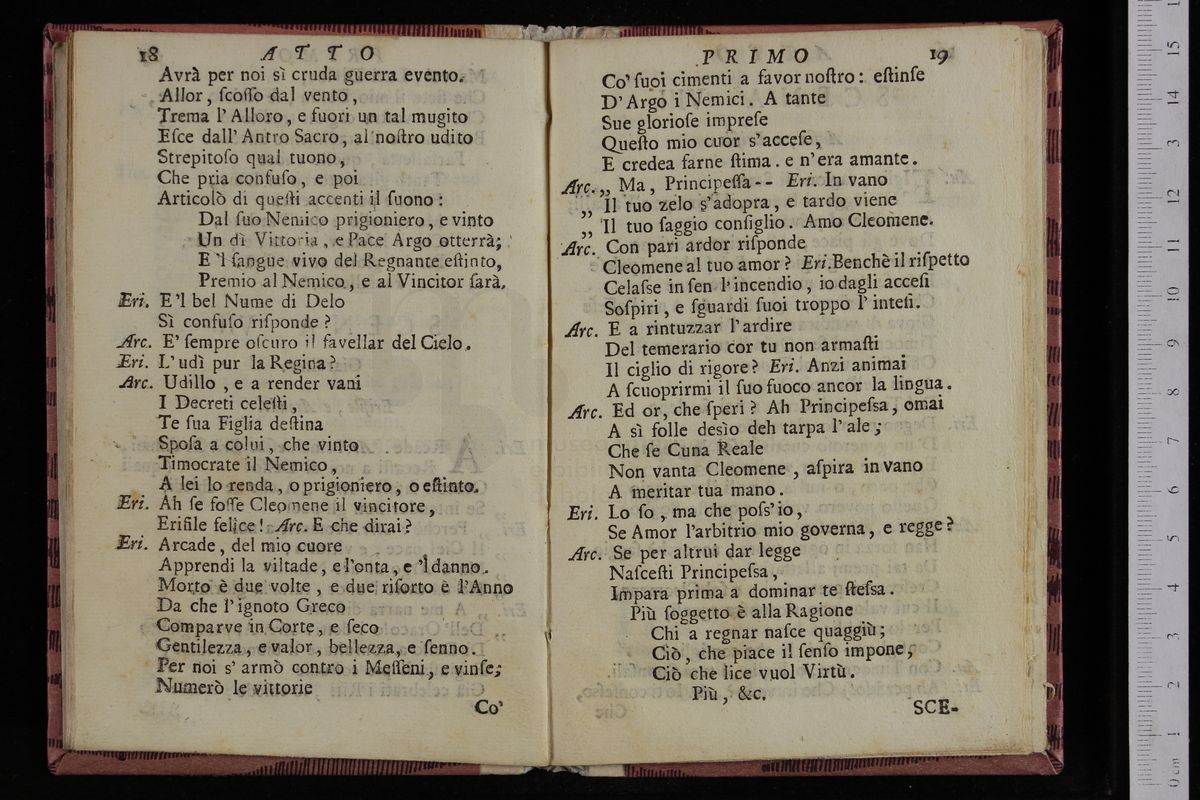 18 ATTO
Avrà per noi sì cruda guerra evento.
Allor, ſcoſſo dal vento,
Trema l' Alloro, e fuori un tal mugito
Eſce dall' Antro Sacro, al noſtro udito
Strepitoſo qual tuono,
Che pria confuſo, e poi
Articolò di queſti accenti il ſuono:
Dal ſuo Nemico prigioniero, e vinto
Un dì Vittoria, e Pace Argo otterrà;
E 'l ſangue vivo del Regnante eſtinto,
Premio al Nemico, e al Vincitor ſarà.
Eri. E'l bel Nume di Delo
Sì confuſo riſponde?
Arc. E' ſempre oſcuro il favellar del Cielo.
Eri. L' udì pur la Regina?
Arc. Udillo, e a render vani
I Decreti celeſti,
Te ſua Figlia deſtina
Spoſa a colui, che vinto
Timocrate il Nemico,
A lei lo renda, o prigioniero, o eſtinto.
Eri. Ah ſe foſſe Cleomene il vincitore,
Erifile felice! Arc. E che dirai?
Eri. Arcade, del mio cuore
Apprendi la viltade, e l'onta, e 'l danno.
Morto è due volte, e due riſorto è l'Anno
Da che l'ignoto Greco
Comparve in Corte, e ſeco
Gentilezza, e valor, bellezza, e ſenno.
Per noi s' armò contro i Meſſeni, e vinſe;
Numerò le vittorie
Co'
PRIMO 19
Co' ſuoi cimenti a favor noſtro: eſtinſe
D' Argo i Nemici. A tante
Sue glorioſe impreſe
Queſto mio cuor s'acceſe,
E credea farne ſtima. e n'era amante.
Arc. „ Ma, Principeſſa-- Eri. In vano
„ Il tuo zelo s'adopra, e tardo viene
„ Il tuo ſaggio conſiglio. Amo Cleomene.
Arc. Con pari ardor riſponde
Cleomene al tuo amor? Eri. Benchè il riſpetto
Celaſse in ſen l'incendio, io dagli acceſi
Soſpiri, e ſguardi ſuoi troppo l' inteſi.
Arc. E a rintuzzar l'ardire
Del temerario cor tu non armaſti
Il ciglio di rigore? Eri. Anzi animai
A ſcuoprirmi il ſuo fuoco ancor la lingua.
Arc. Ed or, che ſperi? Ah Principeſsa, omai
A sì folle desìo deh tarpa l'ale;
Che ſe Cuna Reale
Non vanta Cleomene, aſpira in vano
A meritar tua mano.
Eri. Lo ſo, ma che poſs'io,
Se Amor l'arbitrio mio governa, e regge?
Arc. Se per altrui dar legge
Naſceſti Principeſsa,
Impara prima a dominar te ſteſsa.
Più ſoggetto è alla Ragione
Chi a regnar naſce quaggiù;
Ciò, che piace il ſenſo impone,
Ciò che lice vuol Virtù.
Più, &c.
SCE-